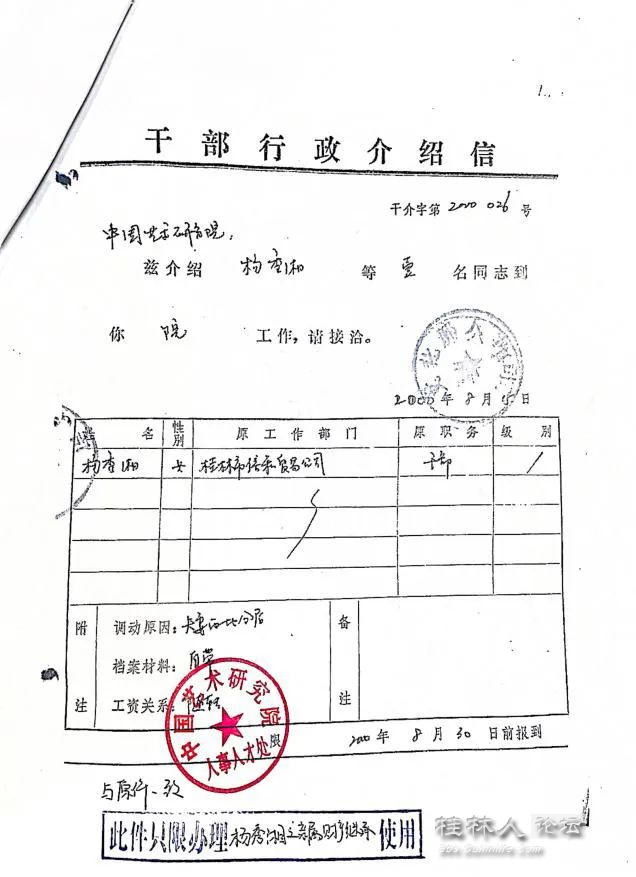 干部行政介绍信
干介字第2000026号
中国艺术研究院：
兹介绍 杨秀湘 等 壹 名同志到
你 院 工作，请接洽。
2000年8月 日
姓 名 性别 原工作部门 原职务 级 别
杨秀湘 女 桂林市 贸易公司 干部 /
附注 调动原因：夫妻两地分居 备注
档案材料：自带
工资关系：
中国艺术研究院
人事人才处
限 2000年8月30日前报到
与原件一致
此件只限办理杨秀湘之亲属财产继承使用
桂林人论坛